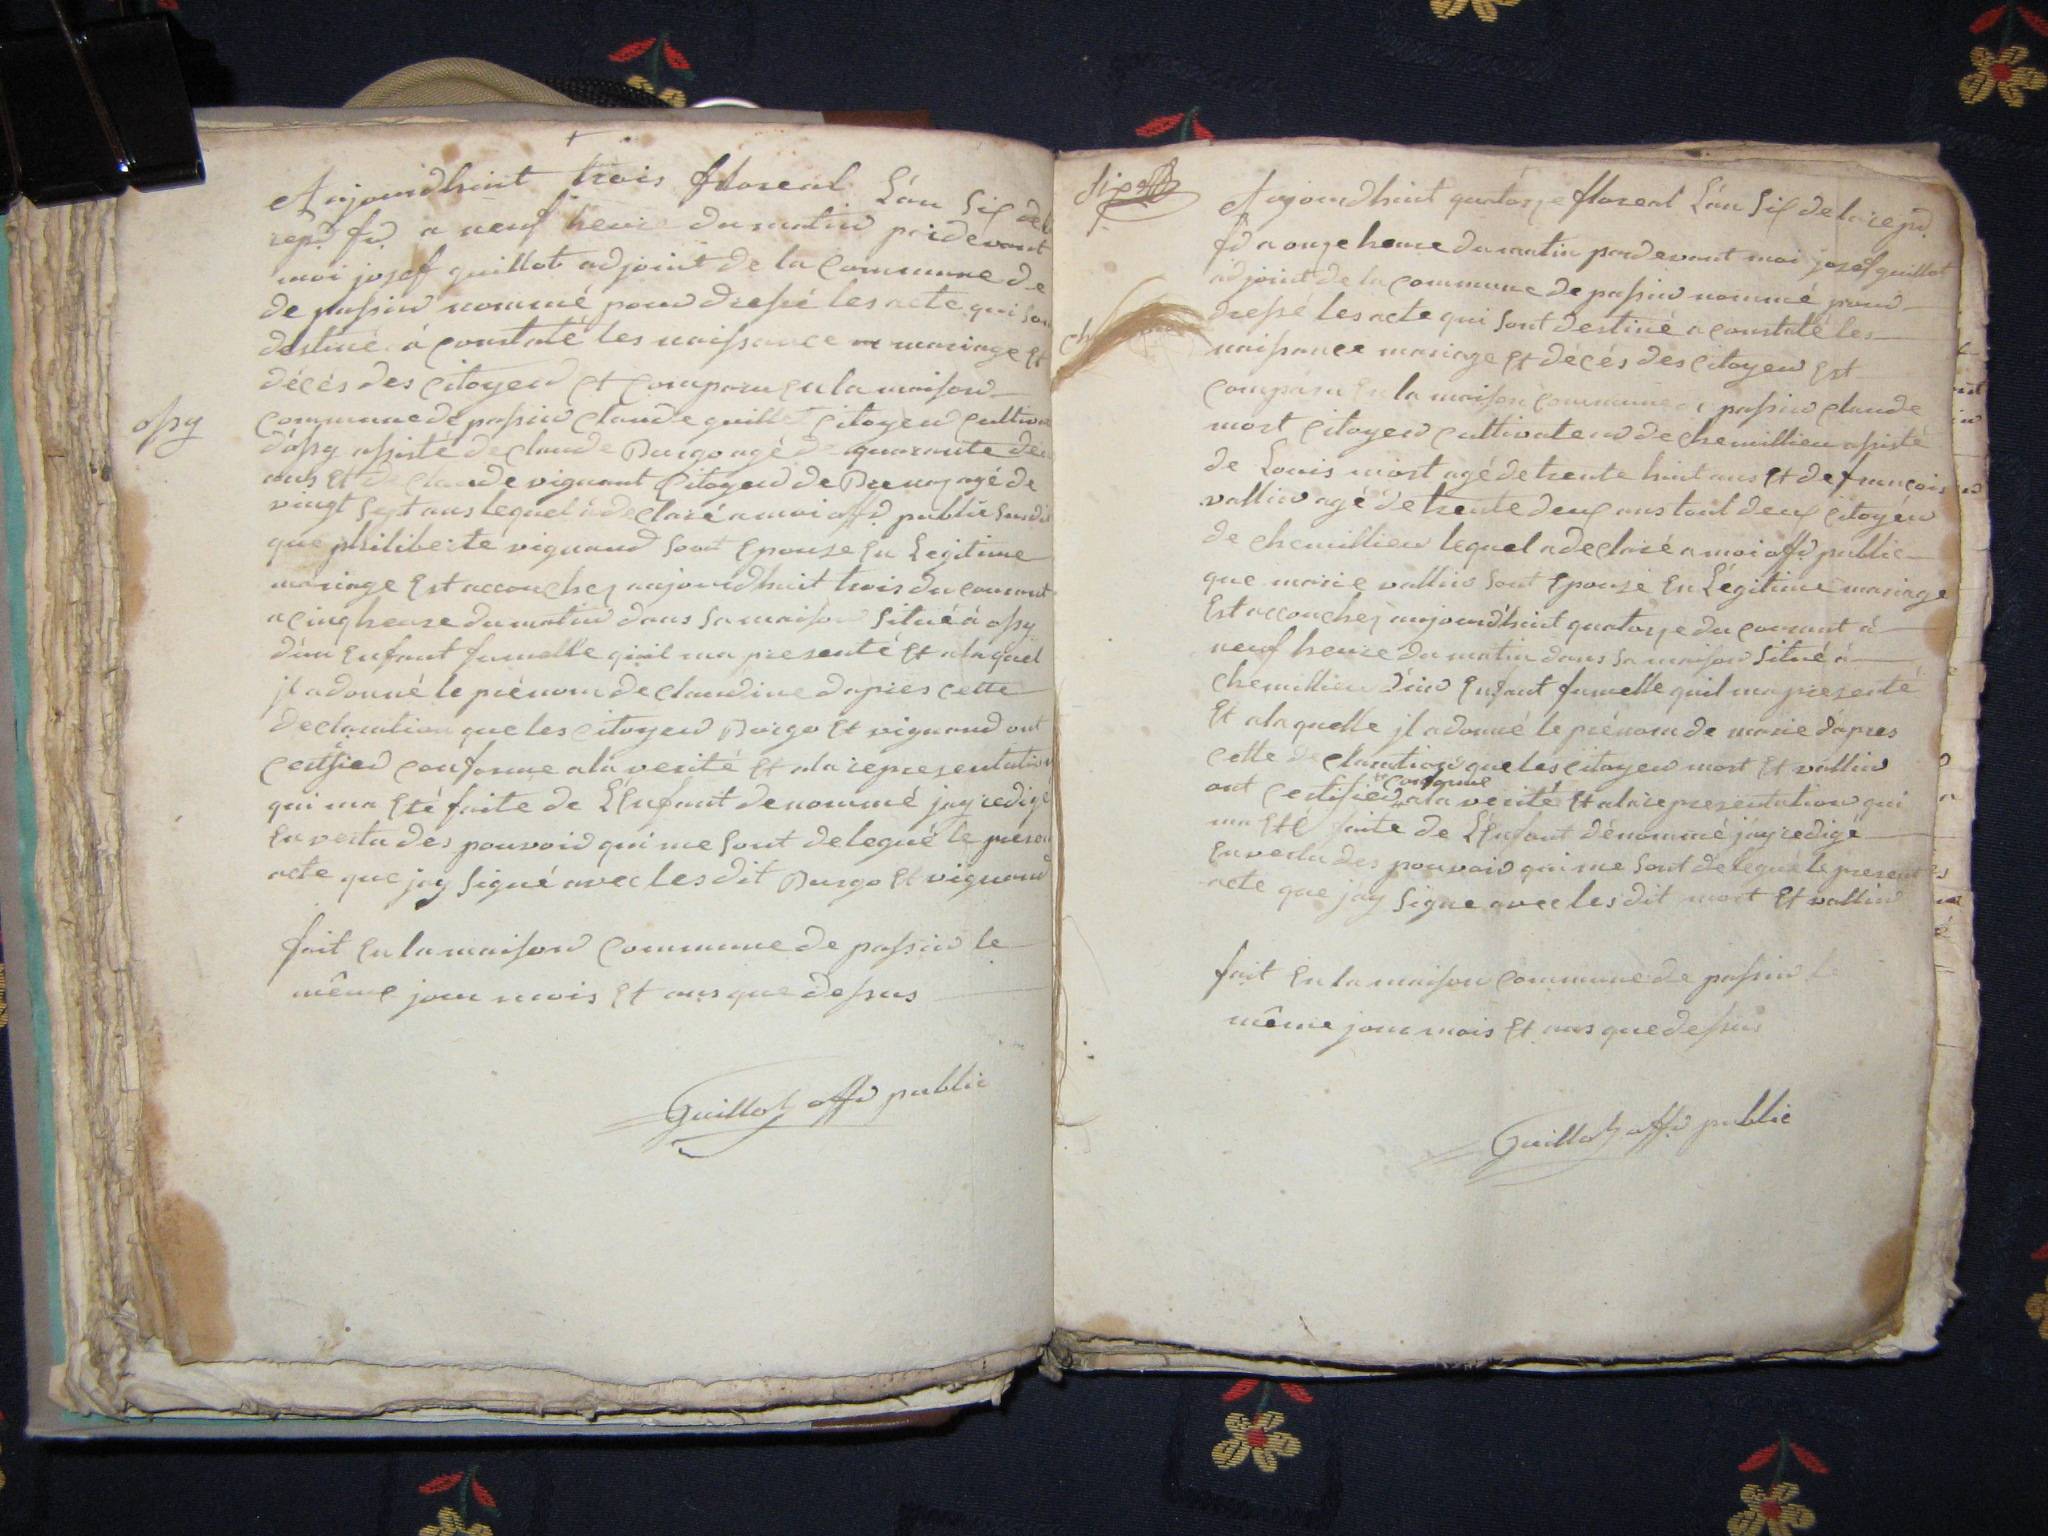 Aujourdhuit trois floreal L'an Six de la
rep.d fd. a neuf heure du matin pardevant
moi josef guillot adjoint de la Commune de
de passin nommé pour dressé les acte qui son
destiné à constaté les naissance mariage Et
décés des Citoyen Et Comparu En la maison
Commune de passin Claude guillet Citoyen Cultiva
ossy
d'ossy assisté de Claude Burgo agé de quarante de
ans Et de Claude vignant Citoyen de agé de
vingt Sept ans lequel a declaré a moi offd. public Susdit
que philiberte vignand Sont Epouse En Legitime
mariage Est accouchez aujourdhuit trois du courant
a Cinq heure du matin dans Sa maison Situé à ossy
d'un Enfant fumelle quil ma presenté Et a la quel
jl a donné le prénom de Claudine dapres Cette
declaration que les Citoyen Burgo Et vignand ont
Certified Conforme a la verité Et a la representation
qui ma Eté faite de L'Enfant denommé jay redigé
En vertu des pouvoid qui me Sont delegué le presen
acte que jay Signé avec les dit Burgo Et vignand
fait En la maison Commune de passin le
même jour mois Et ans que dessus
Guillot offd public
Six
Aujourdhuit quatorze floreal L'an Six de la rep.d
fd a onze heure du matin pardevant moi josef guillot
adjoint de la Commune de passin nommé pour
dressé les acte qui Sont destiné a constaté les
naissance mariage Et décés des Citoyen Est
Comparu En la maison Commune passin Claude
mort Citoyen Cultivateur de Chemillieu assisté
de Louis mort agé de trente huit ans Et de françois
vallin agé de trente deux ans tout deux Citoyen
de Chemillieu lequel a declaré a moi offd public
que marie vallin Sont Epouse En Légitime mariage
Est accouchez aujourd'huit quatorze du courant à
neuf heure du matin dans Sa maison Situé à
Chemillieu d'un Enfant fumelle quil ma presenté
Et a la quelle jl a donné le prénom de marie dápres
Cette declaration que les Citoyen mort Et vallin
Conforme
ont Certified a la verité Et a la representation qui
ma Eté faite de L'Enfant dénommé jáy redigé
En vertu des pouvoid qui me Sont delegué le present
acte que jay Signe avec les dit mort Et vallin
fait En la maison Commune de passin le
même jour mois Et ans que dessus
Guillot offd public